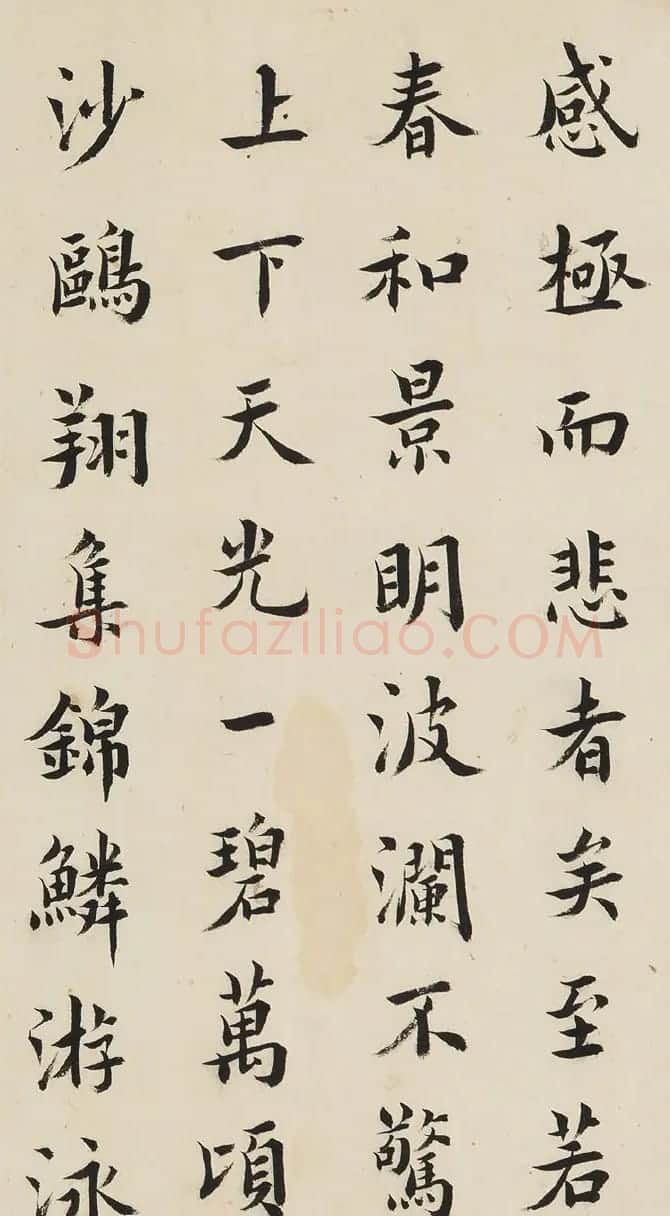 感極而悲者矣至若
春和景明波瀾不驚
上下天光一碧萬頃
沙鷗翔集錦鱗游泳
Shufaziliao.COM